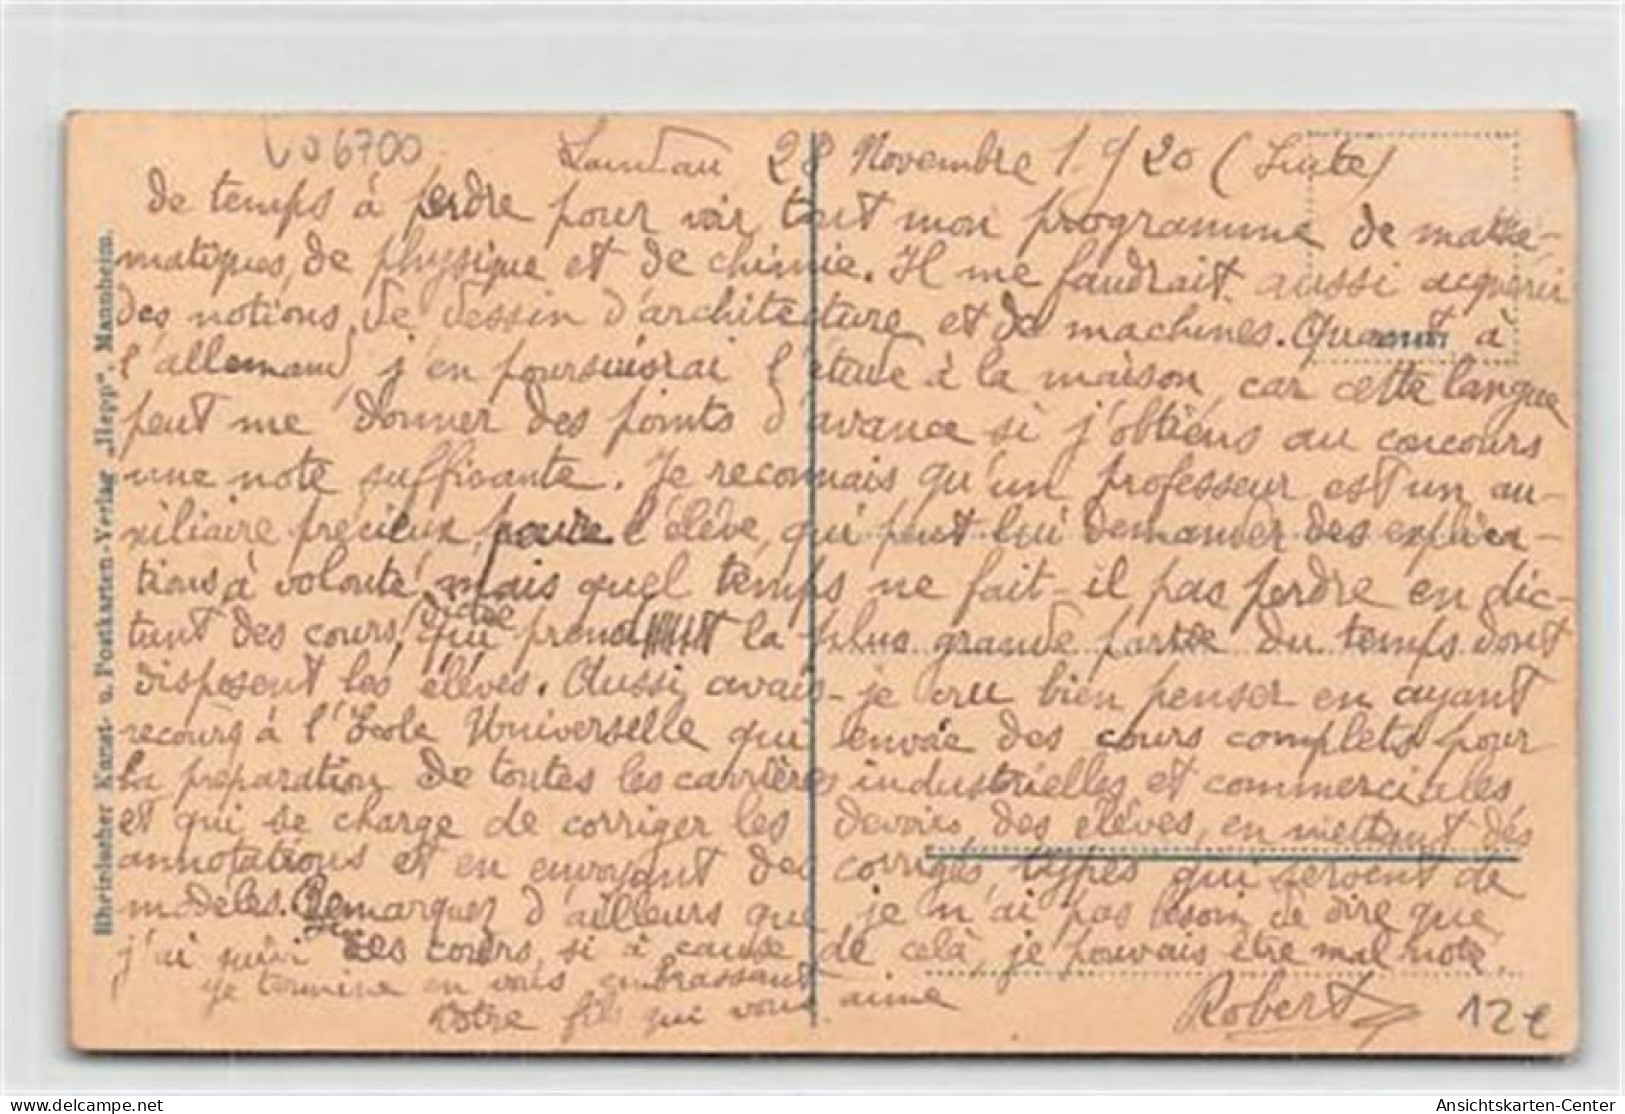 6700
Landau 28 Novembre 1920 (Suite)
de temps à perdre pour voir tout mon programme de mathé-
matiques, de physique et de chimie. Il me faudrait aussi acquérir
des notions de dessin d'architecture et de machines. Quant à
l'allemand j'en poursuivrai l'étude à la maison, car cette langue
peut me donner des points d'avance si j'obtiens au concours
une note suffisante. Je reconnais qu'un professeur est un au-
xiliaire précieux pour l'élève, qui peut lui demander des explica-
tions à volonté, mais quel temps ne fait-il pas perdre en dic-
tant des cours, dictée qui prend la plus grande partie du temps dont
disposent les élèves. Aussi avais-je cru bien penser en ayant
recours à l'École Universelle qui envoie des cours complets pour
la préparation de toutes les carrières industrielles et commerciales
et qui se charge de corriger les devoirs des élèves, en mettant des
annotations et en envoyant des corrigés types qui servent de
modèles. Remarquez d'ailleurs que je n'ai pas besoin de dire que
j'ai suivi ces cours, si à cause de celà, je pouvais être mal noté,
Je termine en vous embrassant
Votre fils qui vous aime
Robert
12€
Rheinischer Kunst- u. Postkarten-Verlag „Hepp", Mannheim.
delcampe.net
Ansichtskarten-Center